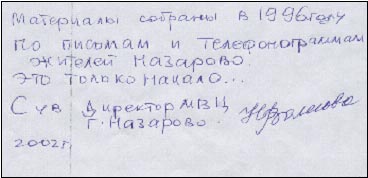 Материалы собраны в 1996году
По письмам и телефонограммам
жителей Назарово.
Это только начало...
С ув Директор МВЦ
г. Назарово.
2002г